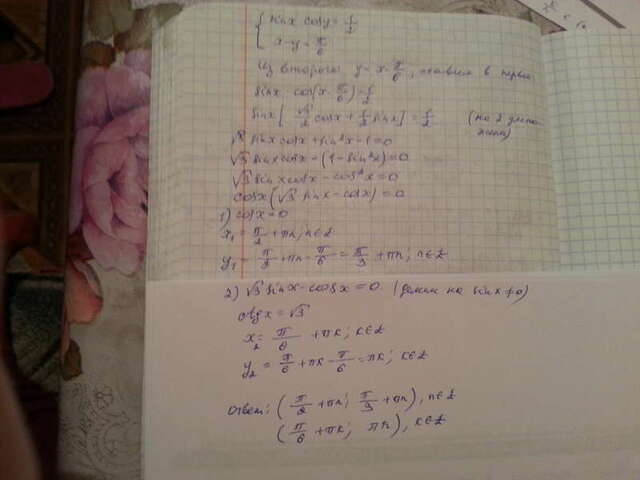 { sinx cosy = 1/2
x - y = π/6
Из второго y = x - π/6, ставим в первое
sinx cos(x - π/6) = 1/2
sinx [ √3/2 cosx + 1/2 sinx ] = 1/2 (на 2 умножили)
√3 sinx cosx + sin²x - 1 = 0
√3 sinx cosx - (1 - sin²x) = 0
√3 sinx cosx - cos²x = 0
cosx (√3 sinx - cosx) = 0
1) cosx = 0
x₁ = π/2 + πn, n∈Z
y₁ = π/2 + πn - π/6 = π/3 + πn; n∈Z
2) √3 sinx - cosx = 0 (делим на sinx ≠ 0)
ctgx = √3
x₂ = π/6 + πk; k∈Z
y₂ = π/6 + πk - π/6 = πk; k∈Z
Ответ: ( π/2 + πn; π/3 + πn), n∈Z
( π/6 + πk; πk), k∈Z